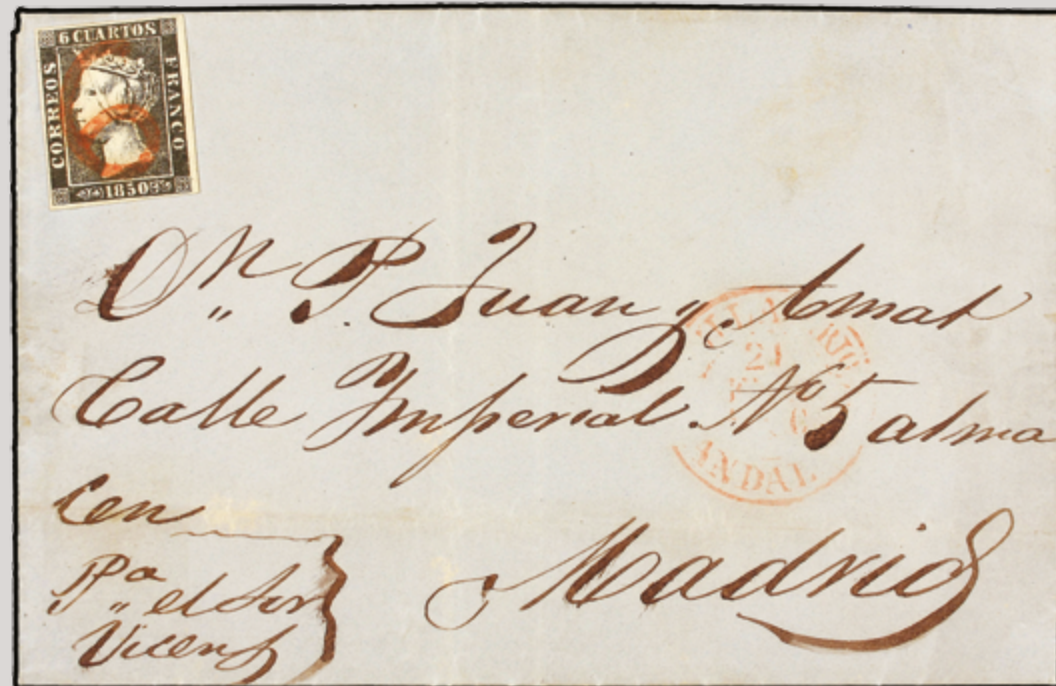 6 CUARTOS
CORREOS
FRANCO
1850
Dn. P. Juan y Amat
Calle Imperial Nº 5 alma
cen
Pa el Sor
Vicens
Madrid
21
6
ANDAL